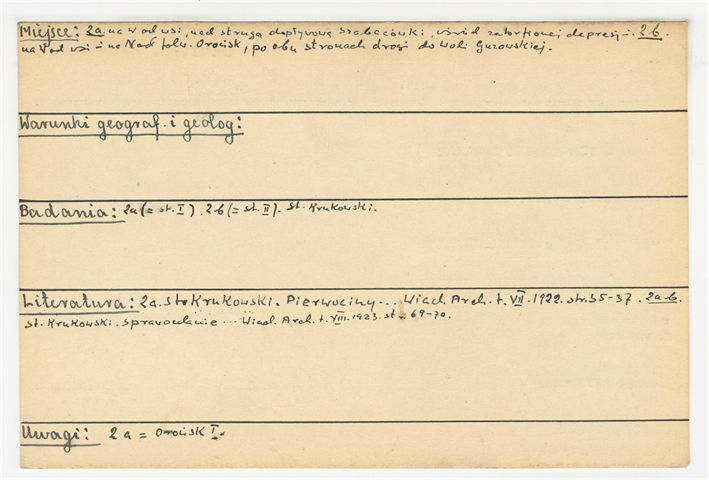 Miejsce: 2a. na W od wsi, nad strugą dopływową Szabacówki, wśród zatorfionej depresji. 2b.
na N od wsi i na N od folw. Orońsk, po obu stronach drogi do Woli Guzowskiej.
Warunki geograf. i geolog:
Badania: 2a (= st. I). 2b (= st. II). St. Krukowski.
Literatura: 2a. St. Krukowski. Pierwociny... Wiad. Arch. t. VII. 1922. str. 35-37. 2a-b.
St. Krukowski. Sprawozdanie... Wiad. Arch. t. VIII. 1923. str. 69-70.
Uwagi: 2a = Orońsk I.